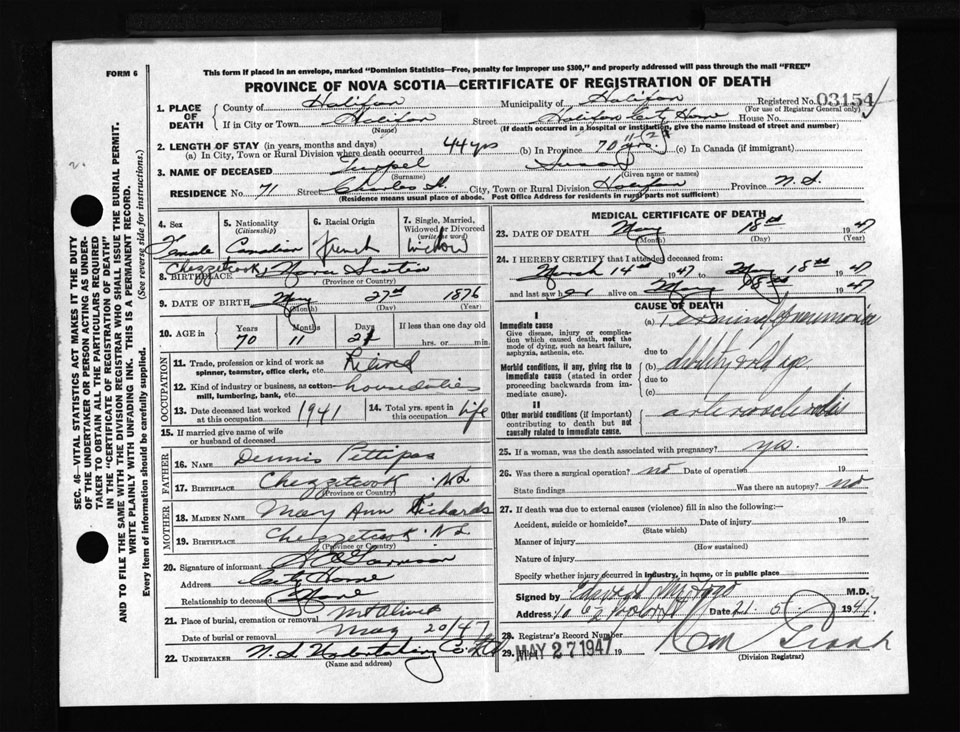 FORM 6
This form if placed in an envelope, marked "Dominion Statistics—Free, penalty for improper use $300," and properly addressed will pass through the mail "FREE"
PROVINCE OF NOVA SCOTIA—CERTIFICATE OF REGISTRATION OF DEATH
SEC. 46—VITAL STATISTICS ACT MAKES IT THE DUTY
OF THE UNDERTAKER OR PERSON ACTING AS UNDER-
TAKER TO OBTAIN ALL THE PARTICULARS REQUIRED
IN THE "CERTIFICATE OF REGISTRATION OF DEATH"
AND TO FILE THE SAME WITH THE DIVISION REGISTRAR WHO SHALL ISSUE THE BURIAL PERMIT.
WRITE PLAINLY WITH UNFADING INK. THIS IS A PERMANENT RECORD.
Every item of information should be carefully supplied. (See reverse side for instructions.)
1. PLACE OF DEATH County of Halifax Municipality of Halifax Registered No. 03154
(For use of Registrar General only)
If in City or Town Halifax Street Halifax City Home House No.
(Name) (If death occurred in a hospital or institution, give the name instead of street and number)
2. LENGTH OF STAY (in years, months and days)
(a) In City, Town or Rural Division where death occurred 44 yrs (b) In Province 70 yrs. (c) In Canada (if immigrant)
3. NAME OF DECEASED Susan
(Surname) (Given name or names)
RESIDENCE No. 71 Street Charles St. City, Town or Rural Division Halifax Province N.S.
(Residence means usual place of abode. Post Office Address for residents in rural parts not sufficient)
4. Sex 5. Nationality (Citizenship) 6. Racial Origin 7. Single, Married, Widowed or Divorced (write the word)
Female Canadian French widow
8. BIRTHPLACE Chezzetcook, Nova Scotia
(Province or Country)
9. DATE OF BIRTH May 27th 1876
(Month) (Day) (Year)
10. AGE in Years Months Days If less than one day old
70 11 21 hrs. or min.
OCCUPATION
11. Trade, profession or kind of work as spinner, teamster, office clerk, etc. Retired
12. Kind of industry or business, as cotton-mill, lumbering, bank, etc. house duties
13. Date deceased last worked at this occupation 1941 14. Total yrs. spent in this occupation life
15. If married give name of wife or husband of deceased
FATHER
16. NAME Dennis Pettipas
17. BIRTHPLACE Chezzetcook N.S.
(Province or Country)
MOTHER
18. MAIDEN NAME Mary Ann Richards
19. BIRTHPLACE Chezzetcook N.S.
(Province or Country)
20. Signature of informant
Address City Home
Relationship to deceased None
21. Place of burial, cremation or removal Mt Olivet
Date of burial or removal May 20/47
22. UNDERTAKER N.S. Undertaking Co. Ltd
(Name and address)
MEDICAL CERTIFICATE OF DEATH
23. DATE OF DEATH May 18th 1947
(Month) (Day) (Year)
24. I HEREBY CERTIFY that I attended deceased from:
March 14th 1947 to May 18th 1947
and last saw her alive on May 18th 1947
CAUSE OF DEATH
I
Immediate cause
Give disease, injury or complication which caused death, not the mode of dying, such as heart failure, asphyxia, asthenia, etc.
(a) Terminal pneumonia
due to
Morbid conditions, if any, giving rise to immediate cause (stated in order proceeding backwards from immediate cause).
(b) debility & old age.
due to
(c)
II
Other morbid conditions (if important) contributing to death but not causally related to immediate cause.
arteriosclerosis
25. If a woman, was the death associated with pregnancy?
26. Was there a surgical operation? no Date of operation 19
State findings Was there an autopsy? no
27. If death was due to external causes (violence) fill in also the following:—
Accident, suicide or homicide? Date of injury 19
(State which)
Manner of injury
(How sustained)
Nature of injury
Specify whether injury occurred in industry, in home, or in public place
Signed by M.D.
Address Date 21. 5. 1947.
28. Registrar's Record Number
29. MAY 27 1947 19
(Division Registrar)